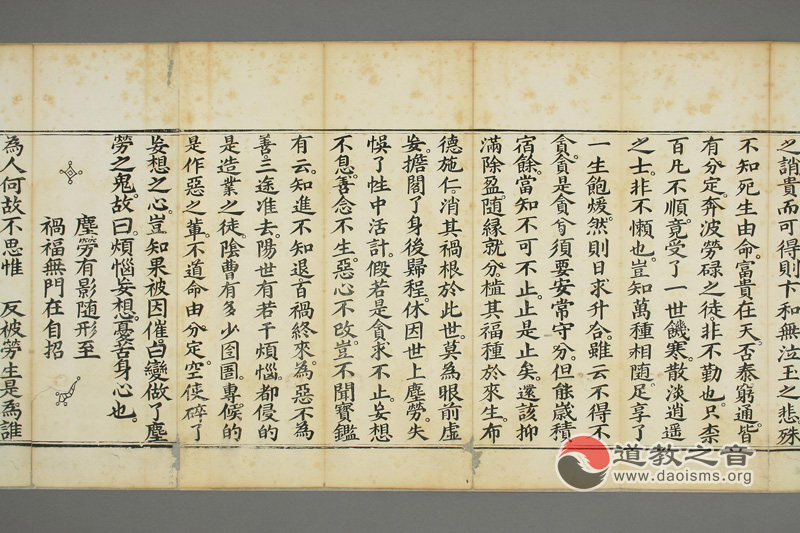 之誚貴而可得則卞和無泣玉之悲殊
不知死生由命富貴在天否泰窮通皆
有分定奔波勞碌之徒非不勤也只柰
百凡不順竟受了一世饑寒散淡逍遥
之士非不懶也豈知萬種相随足享了
一生飽煖然則日求升合雖云不得不
貪貪是貪兮須要安常守分但能歲積
宿餘當知不可不止止是止矣還該抑
滿除盈随緣就分植其福種於來生布
德施仁消其禍根於此世莫為眼前虛
妄擔閣了身後歸程休因世上塵勞失
悞了性中活計假若是貪求不止妄想
不息善念不生惡心不改豈不聞寶鑑
有云知進不知退百禍終來為惡不為
善三途准去陽世有若干煩惱都侵的
是造業之徒陰曹有多少囹圄專候的
是作惡之軰不道命由分定空使碎了
妄想之心豈知果被因催白變做了塵
勞之鬼故曰煩惱妄想憂苦身心也
塵勞有影随形至
禍福無門在自招
為人何故不思惟 反被勞生是為誰
道教之音
www.daoisms.org